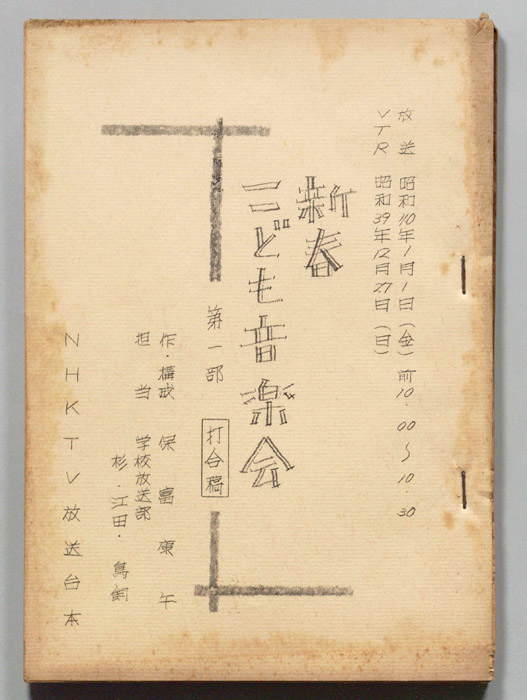 放送 昭和40年1月1日(金)前10.00~10.30
VTR 昭和39年12月27日(日)
新春
こども音楽会
第一部 打合稿
作・構成 保富康午
担当 学校放送部
杉・江田・鳥飼
NHKTV放送台本